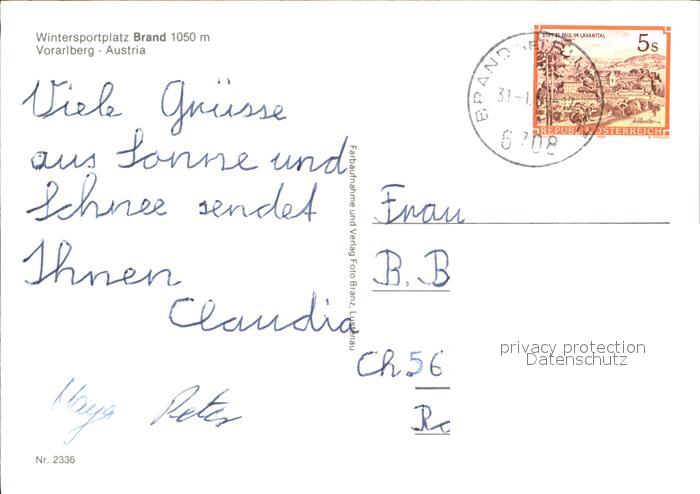 Wintersportplatz Brand 1050 m
Vorarlberg - Austria
Viele Grüsse
aus Sonne und
Schnee sendet
Ihnen
Claudia
Maya Peter
Nr. 2336
Farbaufnahme und Verlag Foto Branz, Lustenau
BRAND
31-1
6708
STIFT ST. PAUL IM LAVANTTAL
5s
REPUBLIK ÖSTERREICH
Frau
B. B
Ch 56
privacy protection
Datenschutz